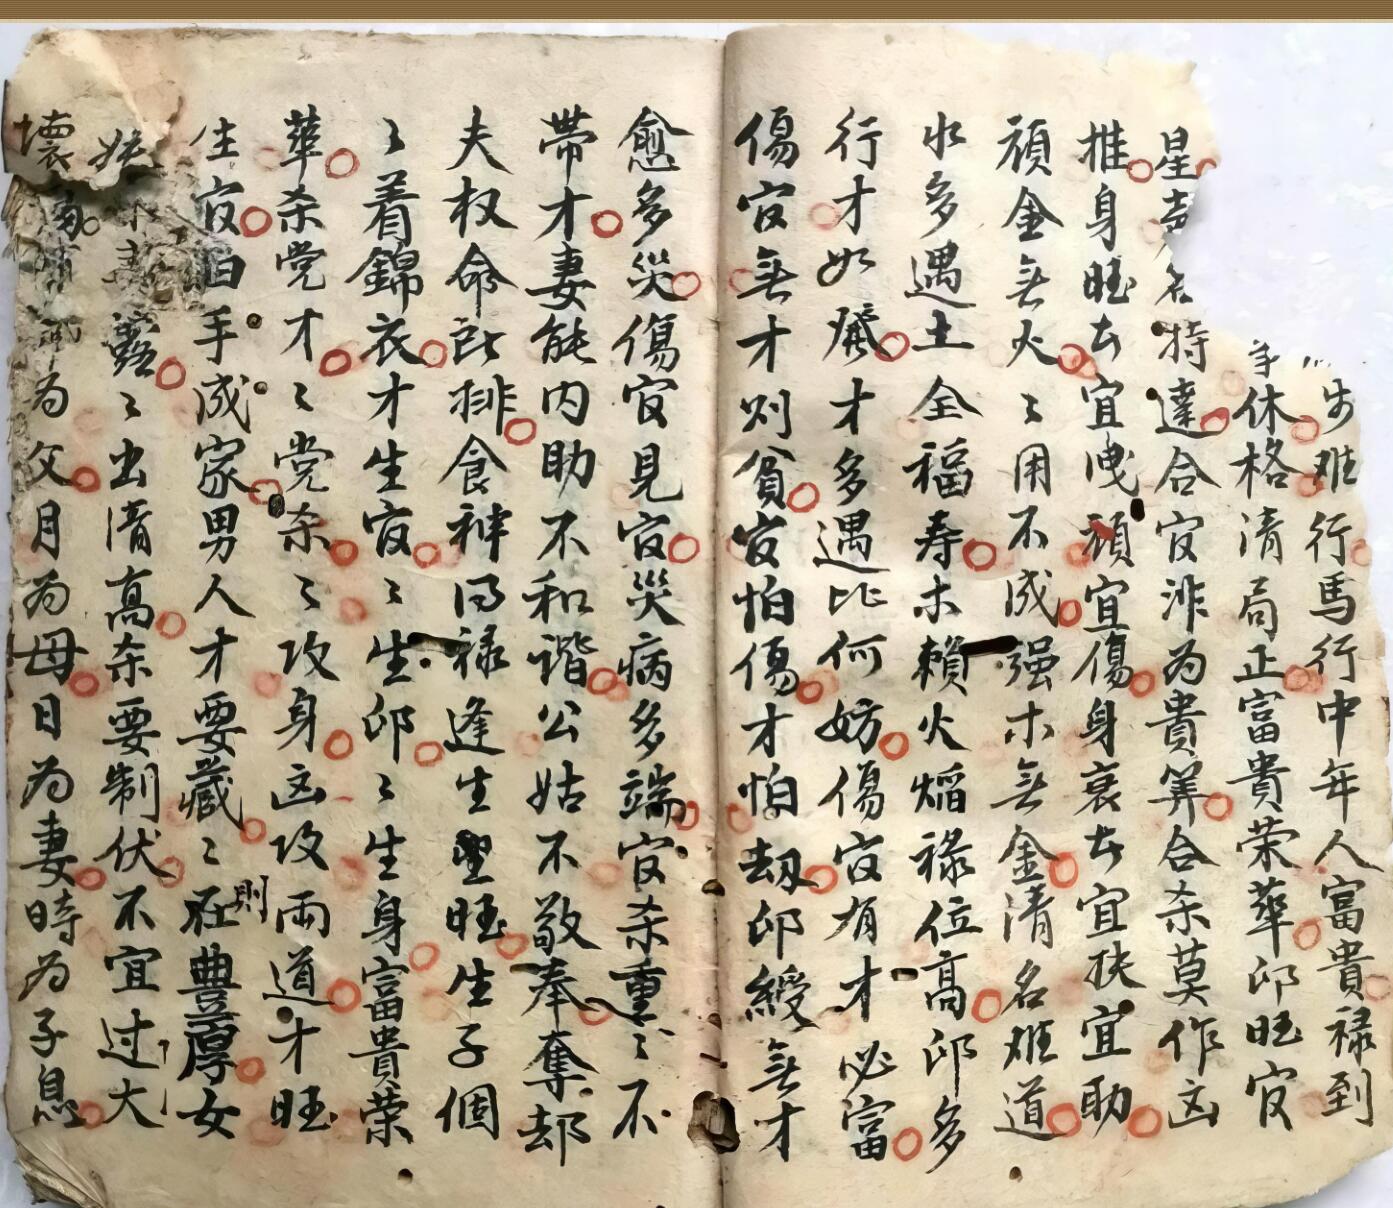 步难行馬行中年人富貴禄到
休格清局正富貴荣華卭旺官
星 名特達合官非为貴算合杀莫作凶
推身旺去宜洩頑宜傷身衰去宜扶宜助
頑金無火〻用不成强木無金清名难道
水多遇土全福寿木賴火焰禄位高卭多
行才如發才多遇比何妨傷官有才必富
傷官無才则貧官怕傷才怕刼卭綬無才
愈多災傷官見官災病多端官杀重〻不
带才妻能内助不和谐公姑不敬奉奪却
夫权命 排食神得禄逢生坐旺生子個
〻着錦衣才生官〻生卭〻生身富貴荣
華杀党才〻党杀〻攻身凶攻両道才旺
生官白手成家男人才要藏〻在則豊厚女
露〻出清高杀要制伏不宜过大
壞 为父月为母日为妻時为子息